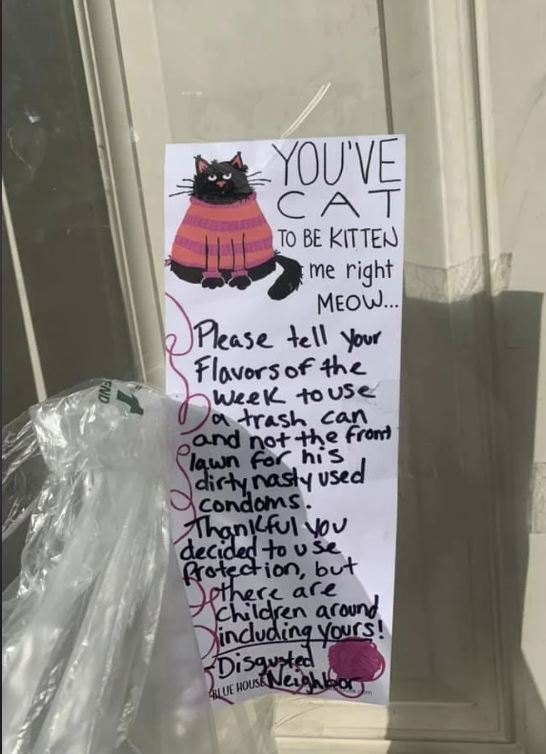 YOU'VE
CAT
TO BE KITTEN
me right
MEOW...
Please tell your
Flavors of the
week to use
a trash can
and not the front
lawn for his
dirty nasty used
condoms.
Thankful you
decided to use
Protection, but
there are
children around
including yours!
-Disgusted
Neighbor
BLUE HOUSE
END
1